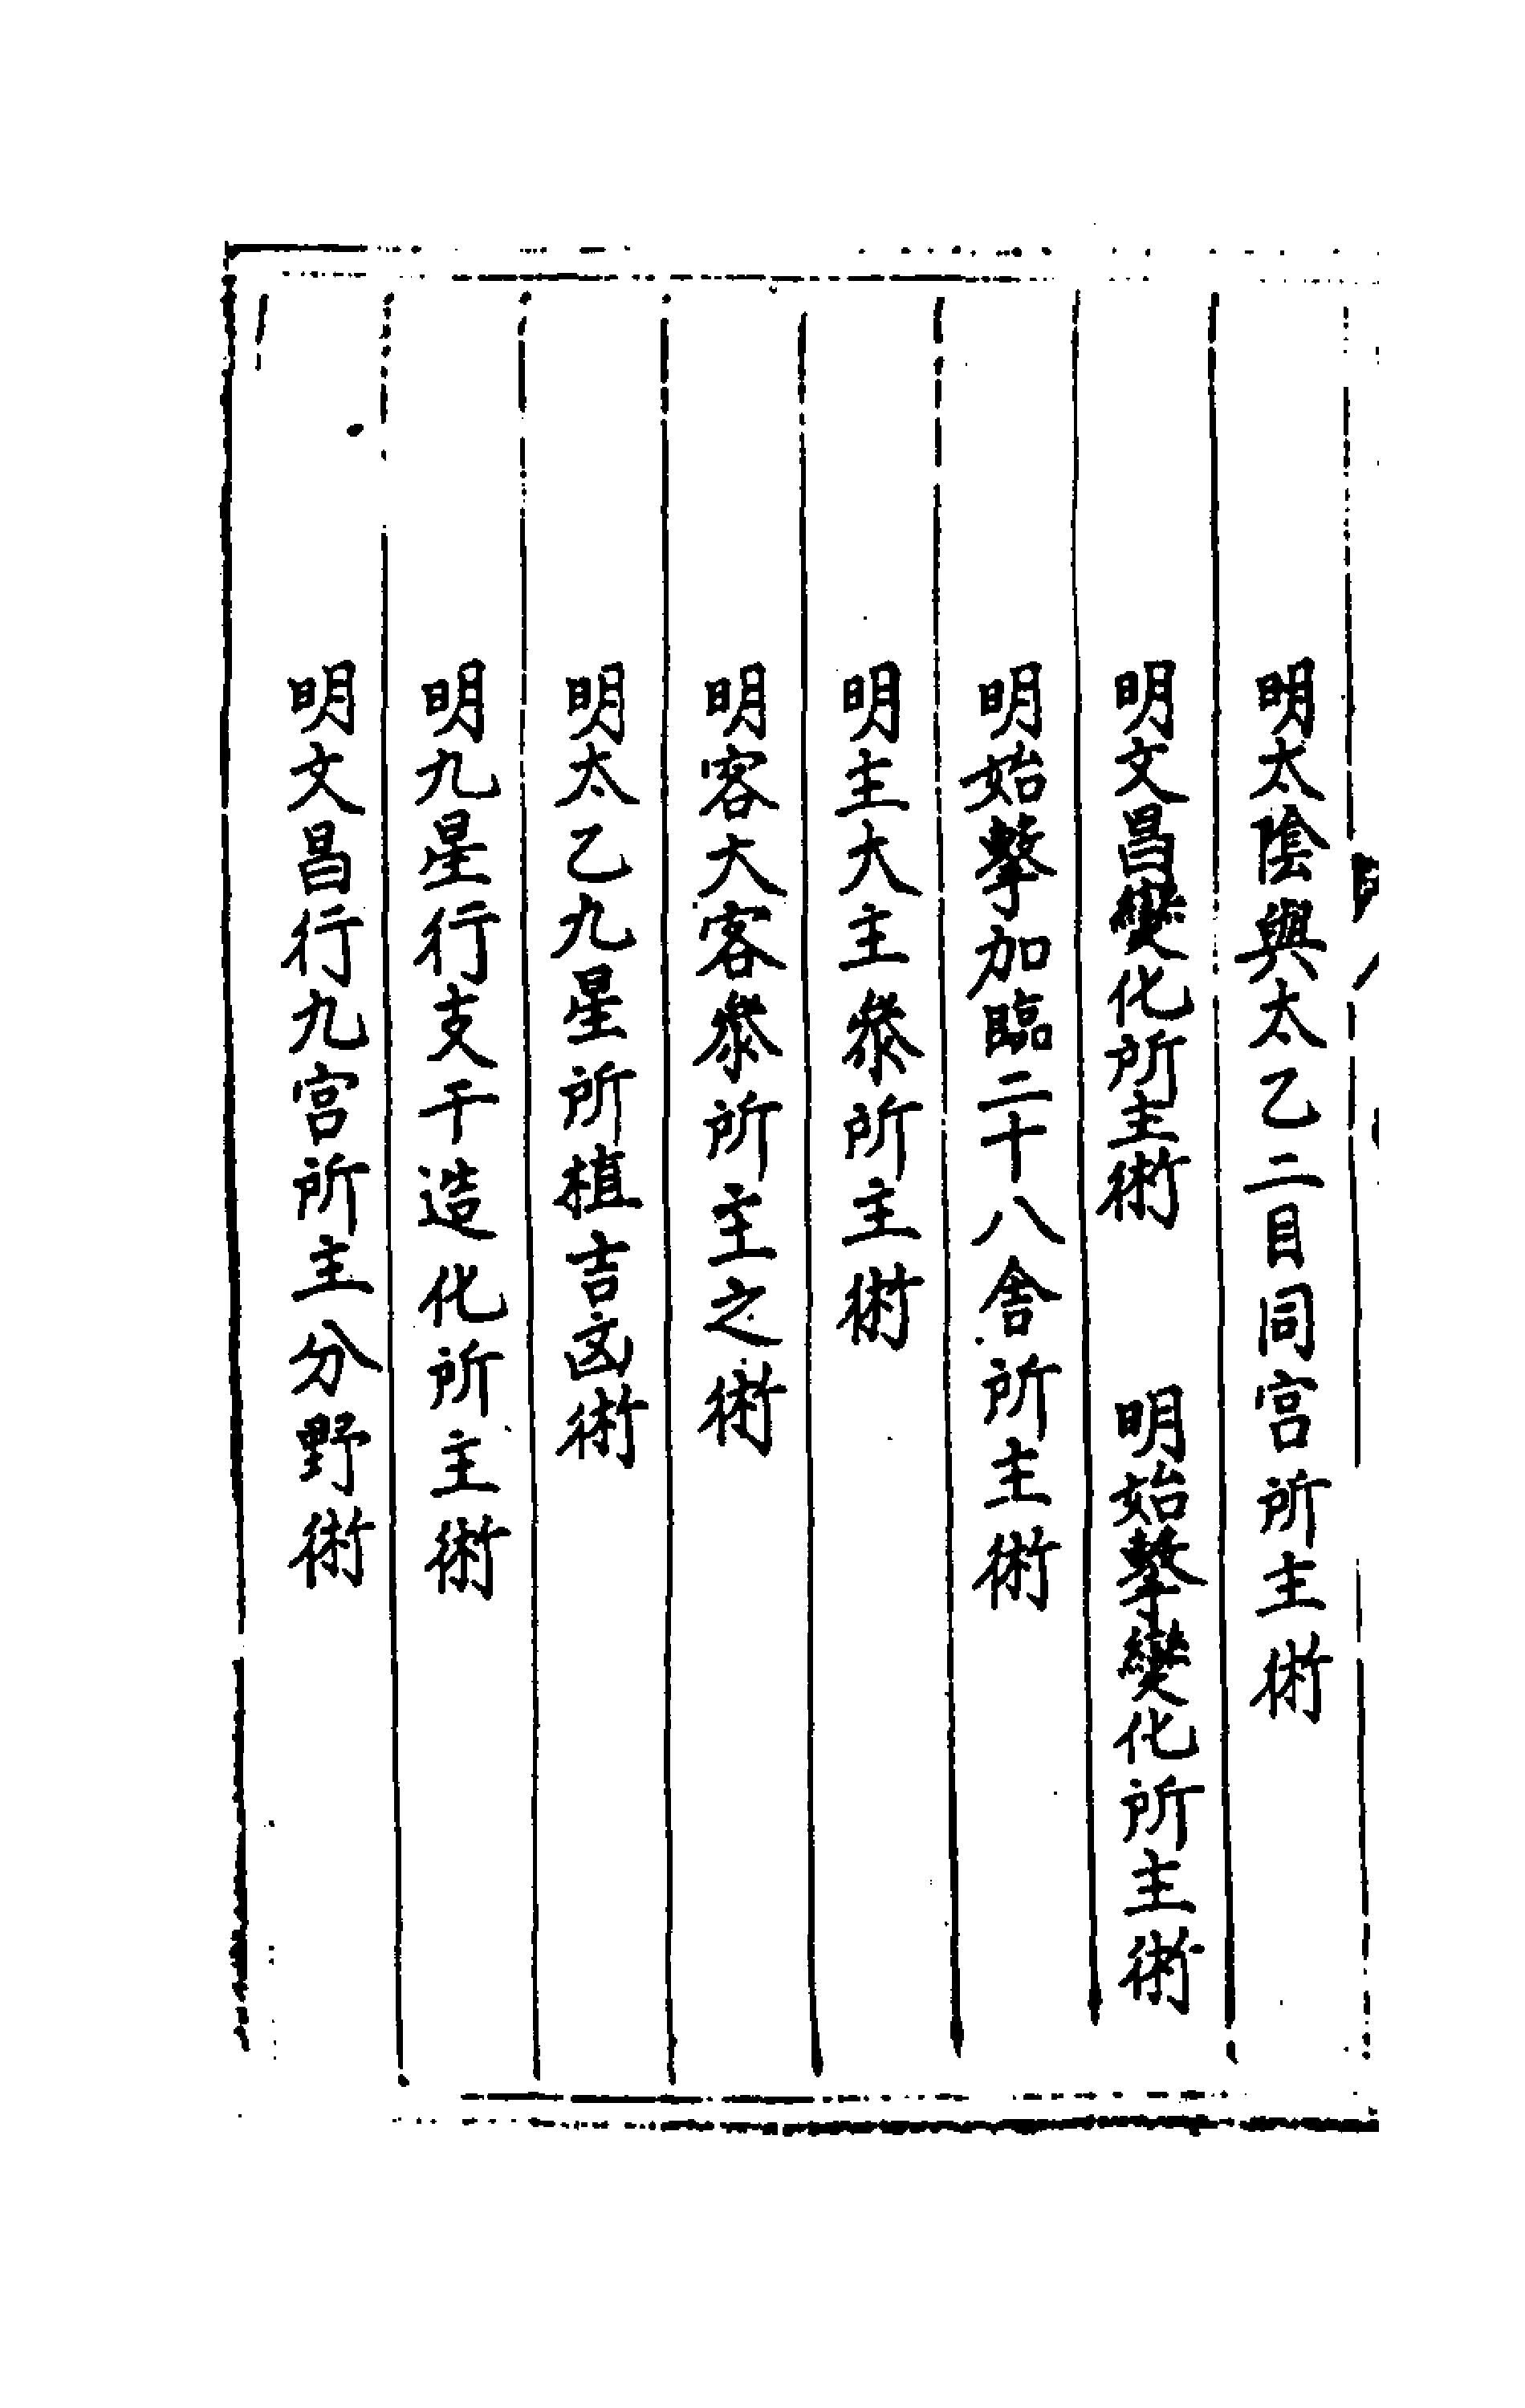 明太陰與太乙二目同宫所主術
明文昌變化所主術　明始擊變化所主術
明始擊加臨二十八舍所主術
明主大主叅所主術
明客大客叅所主之術
明太乙九星所植吉凶術
明九星行支干造化所主術
明文昌行九宫所主分野術